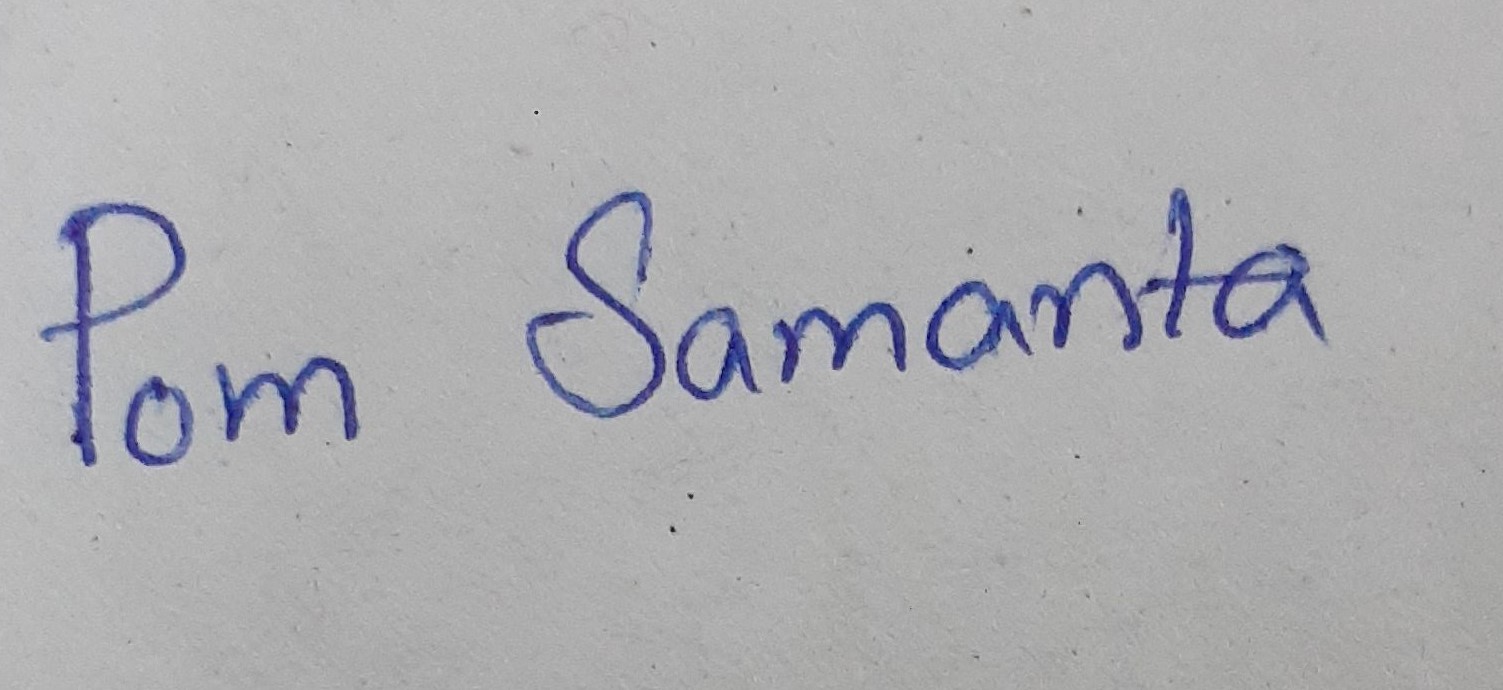 Pom Samanta